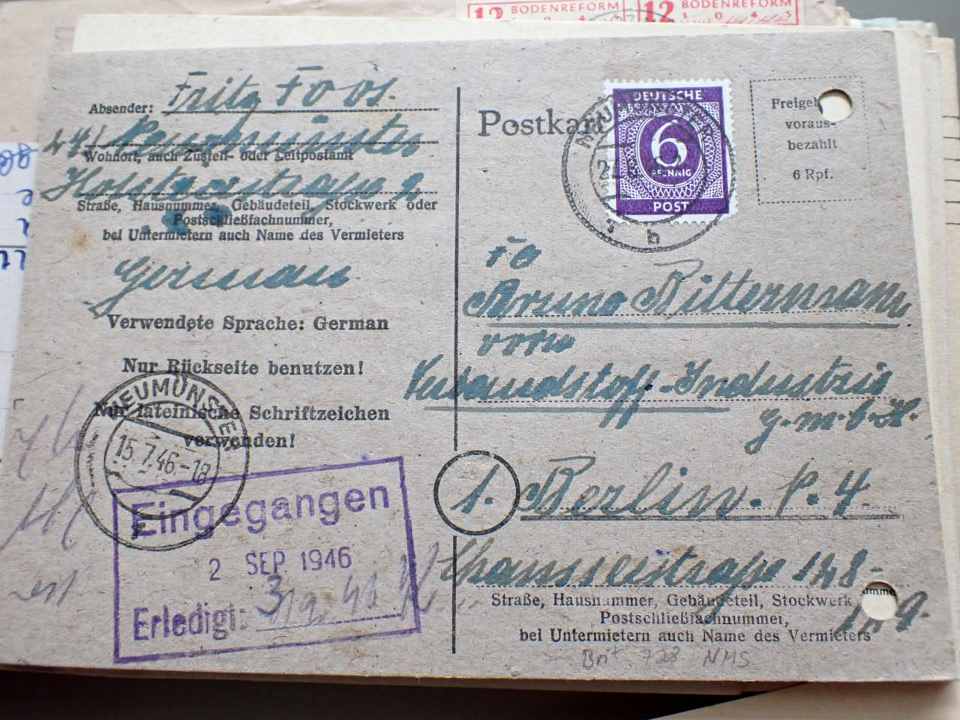 12 BODENREFORM 12 BODENREFORM
Absender: Fritz Foos.
24/ Neumünster
Wohnort, auch Zustell- oder Leitpostamt
Straße, Hausnummer, Gebäudeteil, Stockwerk oder
Postschließfachnummer,
bei Untermietern auch Name des Vermieters
German
Verwendete Sprache: German
Nur Rückseite benutzen!
Nur lateinische Schriftzeichen
verwenden!
NEUMÜNSTER
15.7.46-1a
Eingegangen
2 SEP 1946
Erledigt:
Postkarte
DEUTSCHE
6
PFENNIG
POST
b
Freigebühr
voraus-
bezahlt
6 Rpf.
to
Bruno Bittermann
Industrie
g.m.b.H.
1. Berlin. N. 4
Chausseestraße 128-
129.
Straße, Hausnummer, Gebäudeteil, Stockwerk
Postschließfachnummer,
bei Untermietern auch Name des Vermieters
Brit 728 NMS